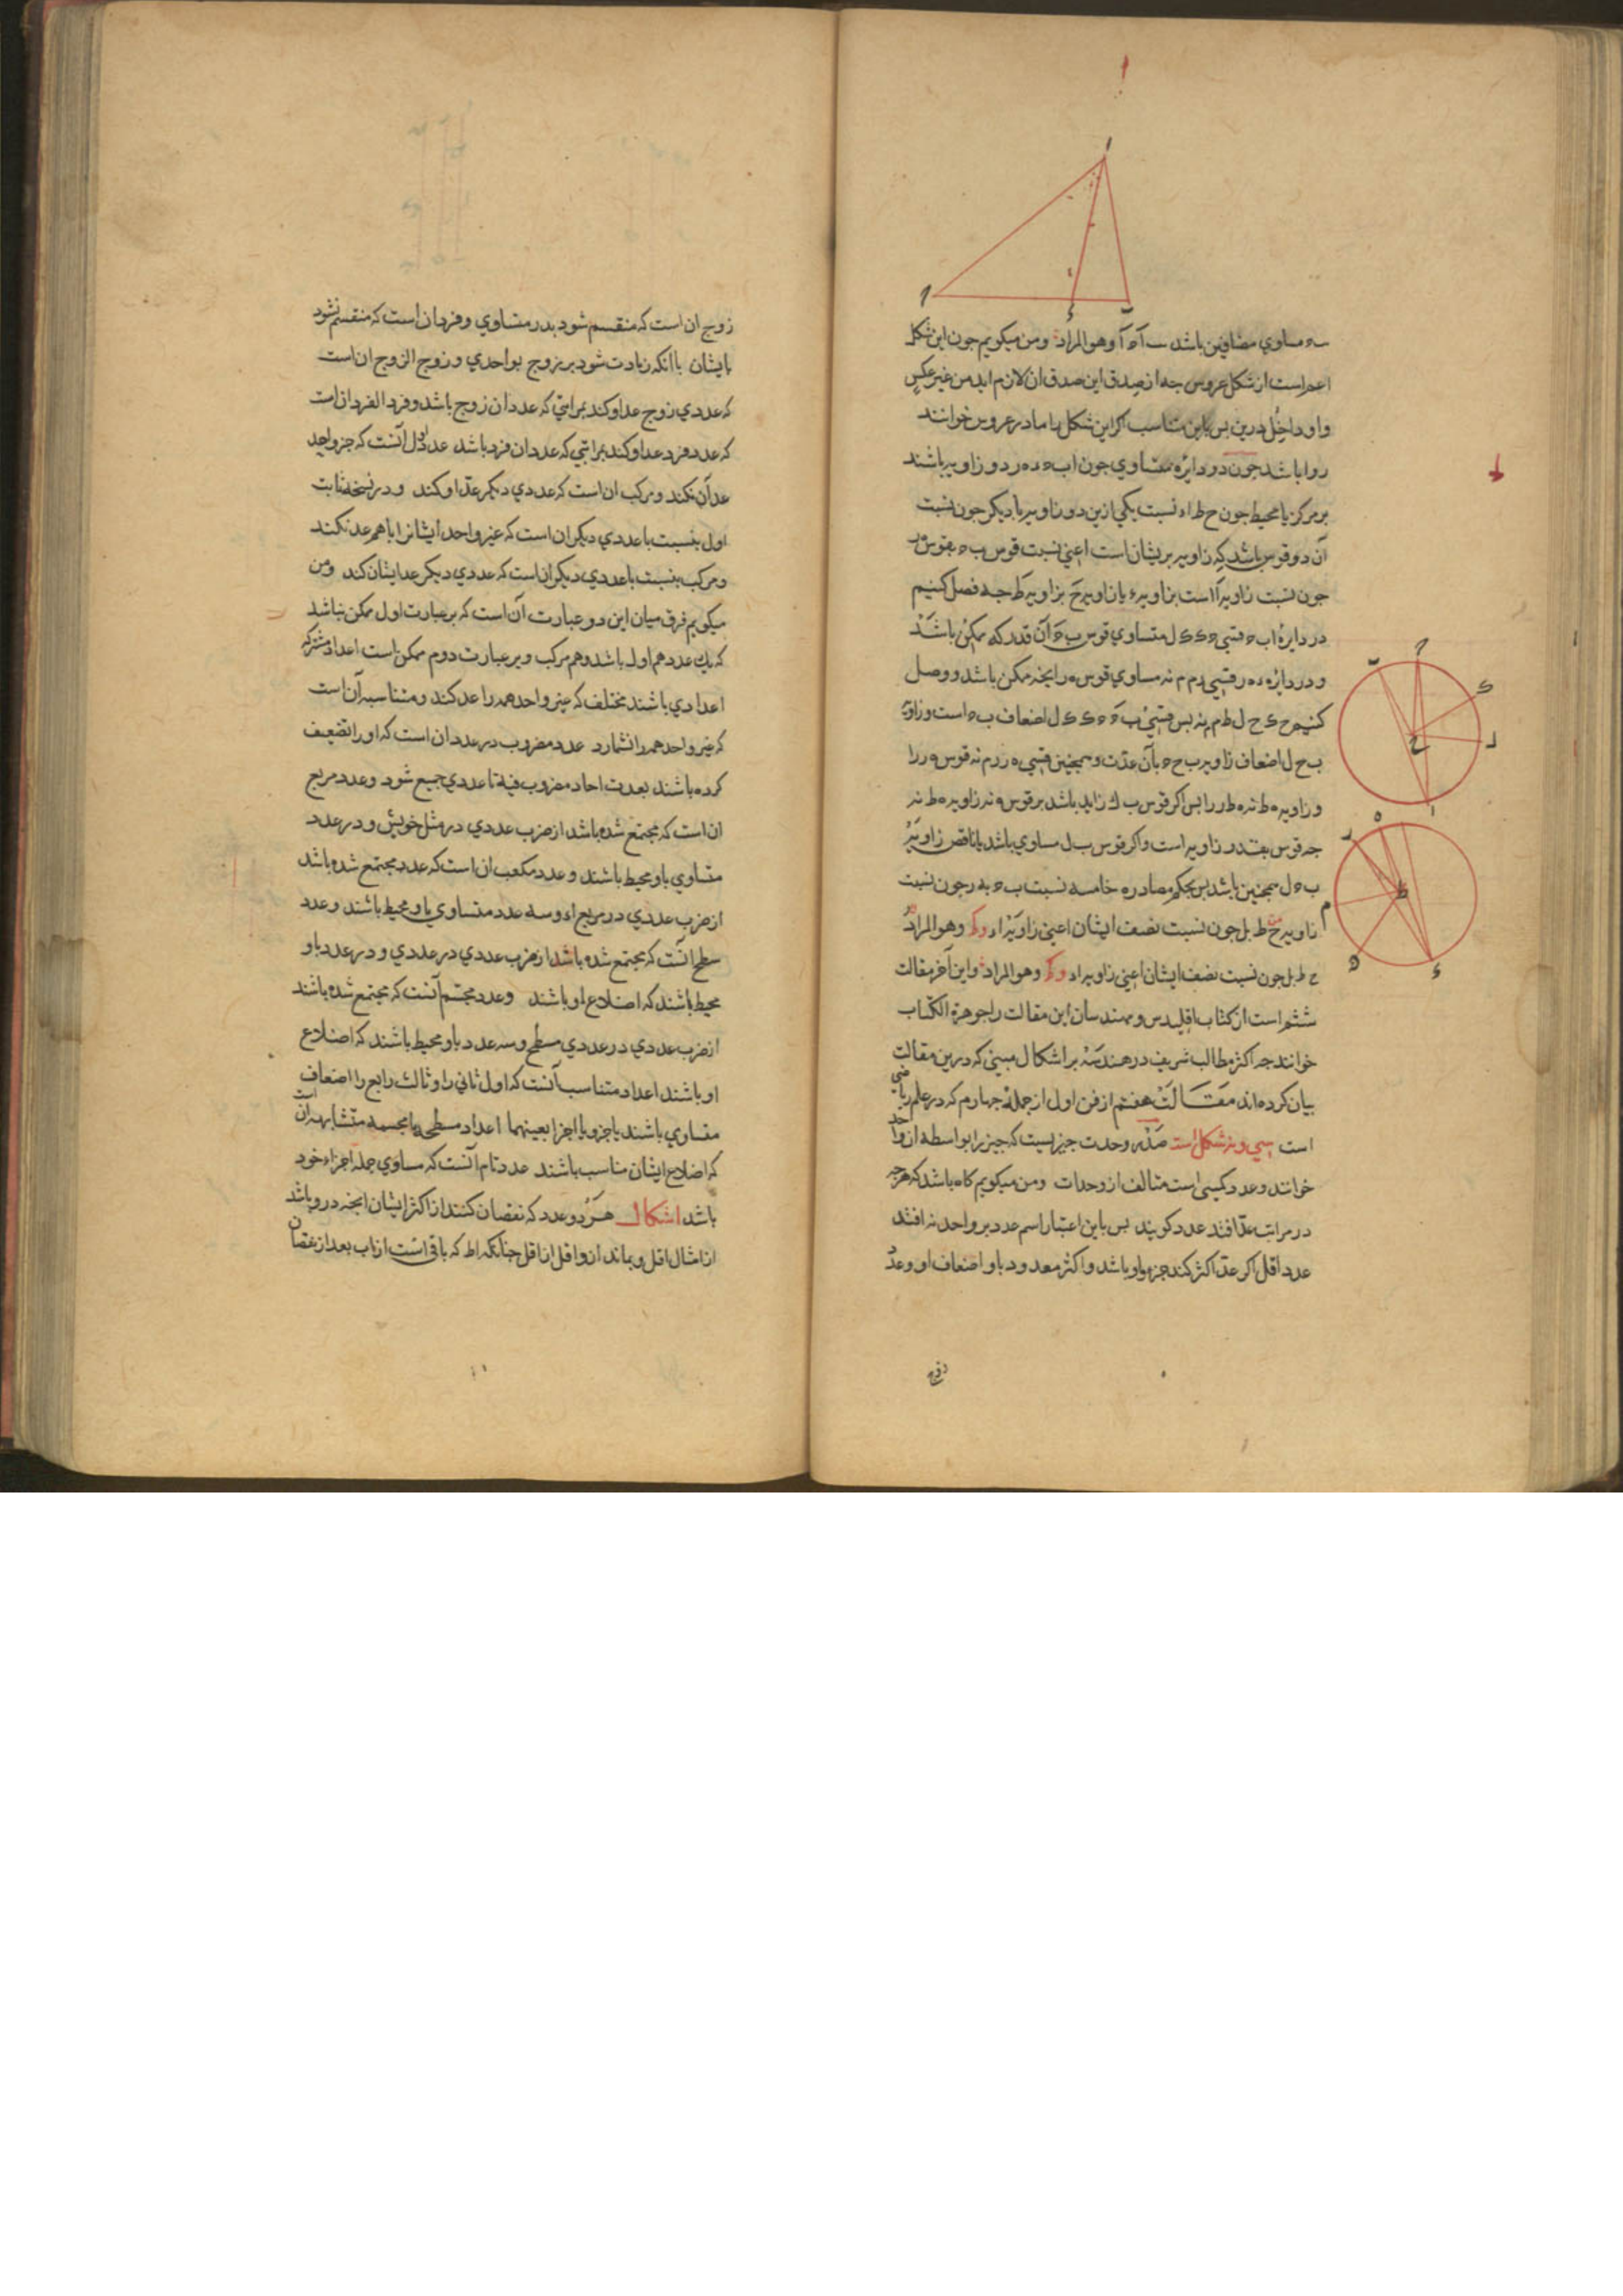 مساوي باشد وهو المراد ومن ميكويم جون اين شكل
اعم است از شكل عروس جه از صدق اين صدق ان لازم ايد من غير عكس
واو داخل درين بس باين تناسب اكر اين شكل را مادر عروس خوانند
روا باشد جون دو دايره متساوي جون اب ده ر دو زاويه باشند
بر مركز يا محيط جون ح ط اد نسبت يكي ازين دو زاويه با ديكر جون نسبت
آن دو قوس باشد كه زاويه بريشان است اعني نسبت قوس ب بقوس
جون نسبت زاويه ا است بزاويه د يا زاويه ح بزاويه ط جه فصل كنيم
در دايرۀ اب قسي ل متساوي قوس ب آن قدر كه ممكن باشد
و در دايره ده ر قسي رم م نه مساوي قوس ه ر انجه ممكن باشد و وصل
كنيم ح ك ح ل ط م نه بس قسي ب ل اضعاف ب است وزاويۀ
ب ح ل اضعاف زاويه ب ح بآن عدت و همجنين قسي ه ر رم م نه قوس ه ر را
وزاويه ه ط نه ه ط ر را بس اكر قوس ب زايد باشد بر قوس ه نه زاويه ه ط نه
جه قوس بقدر زاويه است و اكر قوس ب ل مساوي باشد يا ناقص زاويۀ
ب ل همجنين باشد بس بحكم مصادره خامسه نسبت ب به ه ر جون نسبت
زاويه ح ط بل جون نسبت نصف ايشان اعني زاويه اد وهو المراد
ح ط بل جون نسبت نصف ايشان اعني زاويه اد وهو المراد واين آخر مقالت
ششم است از كتاب اقليدس و مهندسان اين مقالت را جوهرة الكتاب
خوانند جه اكثر مطالب شريف در هندسه بر اشكال مبيني كه درين مقالت
بيان كرده اند مقالت هفتم از فن اول از جملۀ جهارم كه در علم رياضي
است سي ونه شكل است صدر وحدت جيزيست كه جيز را بواسطه ان واحد
خوانند وعدد كميي است متالف از وحدات ومن ميكويم كاه باشد كه هرجه
در مراتب عد افتد عدد كويند بس باين اعتبار اسم عدد بر واحد نه افتد
عدد اقل اكر عد اكثر كند جزو او باشد و اكثر معدود باو اضعاف او وعدد
زوج
زوج ان است كه منقسم شود بدو متساوي وفرد ان است كه منقسم نشود
بايشان با انكه زيادت شود بر زوج بواحدي و زوج الزوج ان است
كه عددي زوج عد او كند بمراتبي كه عدد ان زوج باشد وفرد الفرد ان است
كه عدد فرد عد او كند بمراتبي كه عدد ان فرد باشد عدد اول آنست كه جز واحد
عد آن نكند ومركب ان است كه عددي ديكر عد او كند ودر نسخه ثابت
اول بنسبت با عددي ديكر ان است كه غير واحد ايشانرا با هم عد نكند
ومركب بنسبت با عددي ديكر ان است كه عددي ديكر عد ايشان كند ومن
ميكويم فرق ميان اين دو عبارت آن است كه بر عبارت اول ممكن نباشد
كه يك عدد هم اول باشد وهم مركب وبر عبارت دوم ممكن است اعداد مشتركه
اعدادي باشند مختلف كه غير واحد همه را عد كند ومتناسبه آن است
كه غير واحد همه را نشمارد عدد مضروب در عدد ان است كه او را تضعيف
كرده باشند بعدت احاد مضروب فيه تا عددي جمع شود وعدد مربع
ان است كه مجتمع شده باشد از ضرب عددي در مثل خويش و دو عدد
متساوي باو محيط باشند وعدد مكعب ان است كه عدد مجتمع شده باشد
از ضرب عددي در مربع او وسه عدد متساوي باو محيط باشند وعدد
سطح آنست كه مجتمع شده باشد از ضرب عددي در عددي و دو عدد باو
محيط باشند كه اضلاع او باشند وعدد مجسم آنست كه مجتمع شده باشند
از ضرب عددي در عددي مسطح وسه عدد باو محيط باشند كه اضلاع
او باشند اعداد متناسب آنست كه اول ثاني را وثالث رابع را اضعاف
متساوي باشند يا جزو يا اجزا بعينهما اعداد مسطحه يا مجسمه متشابهه آن است
كه اضلاع ايشان مناسب باشند عدد تام آنست كه مساوي جمله اجزاء خود
باشد اشكال هر دو عدد كه نقصان كنند از اكثر ايشان انجه درو باشد
از امثال اقل و بماند ازو اقل از اقل جنانكه اط كه باقي است از اب بعد از نقصان